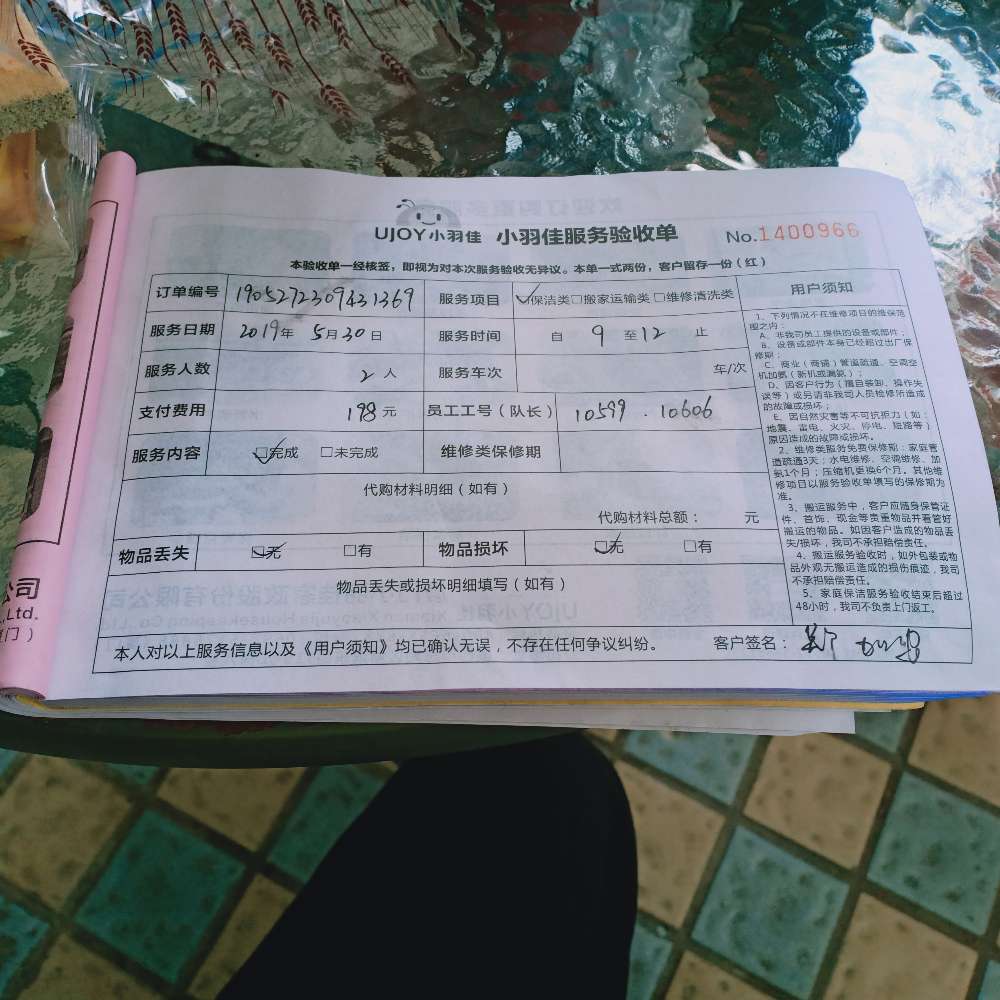 UJOY小羽佳 小羽佳服务验收单 No.1400966
本验收单一经核签，即视为对本次服务验收无异议。本单一式两份，客户留存一份（红）
订单编号 1905272309431369 服务项目 ☑保洁类□搬家运输类□维修清洗类
服务日期 2019年 5月30日 服务时间 自 9 至12 止
服务人数 2人 服务车次 车/次
支付费用 198元 员工工号（队长） 10599 . 10606
服务内容 ☑完成 □未完成 维修类保修期
代购材料明细（如有）
代购材料总额： 元
物品丢失 ☑无 □有 物品损坏 ☑无 □有
物品丢失或损坏明细填写（如有）
本人对以上服务信息以及《用户须知》均已确认无误，不存在任何争议纠纷。 客户签名：
用户须知
1、下列情况不在维修项目的维保范
围之内：
A、非我司员工提供的设备或部件；
B、设备或部件本身已经超过出厂保
修期；
C、商业（商铺）管道疏通、空调空
机加氨（新机或漏氨）；
D、因客户行为（擅自装卸、操作失
误等）或另请非我司人员检修所造成
的故障或损坏；
E、因自然灾害等不可抗拒力（如：
地震、雷电、火灾、停电、短路等）
原因造成的故障或损坏。
2、维修类服务免费保修期：家庭管
道疏通3天；水电维修、空调维修、加
氨1个月；压缩机更换6个月。其他维
修项目以服务验收单填写的保修期为
准。
3、搬运服务中，客户应随身保管证
件、首饰、现金等贵重物品并看管好
搬运的物品。如因客户造成的物品丢
失/损坏，我司不承担赔偿责任。
4、搬运服务验收时，如外包装或物
品外观无搬运造成的损伤痕迹，我司
不承担赔偿责任。
5、家庭保洁服务验收结束后超过
48小时，我司不负责上门返工。
公司
,Ltd.
门）